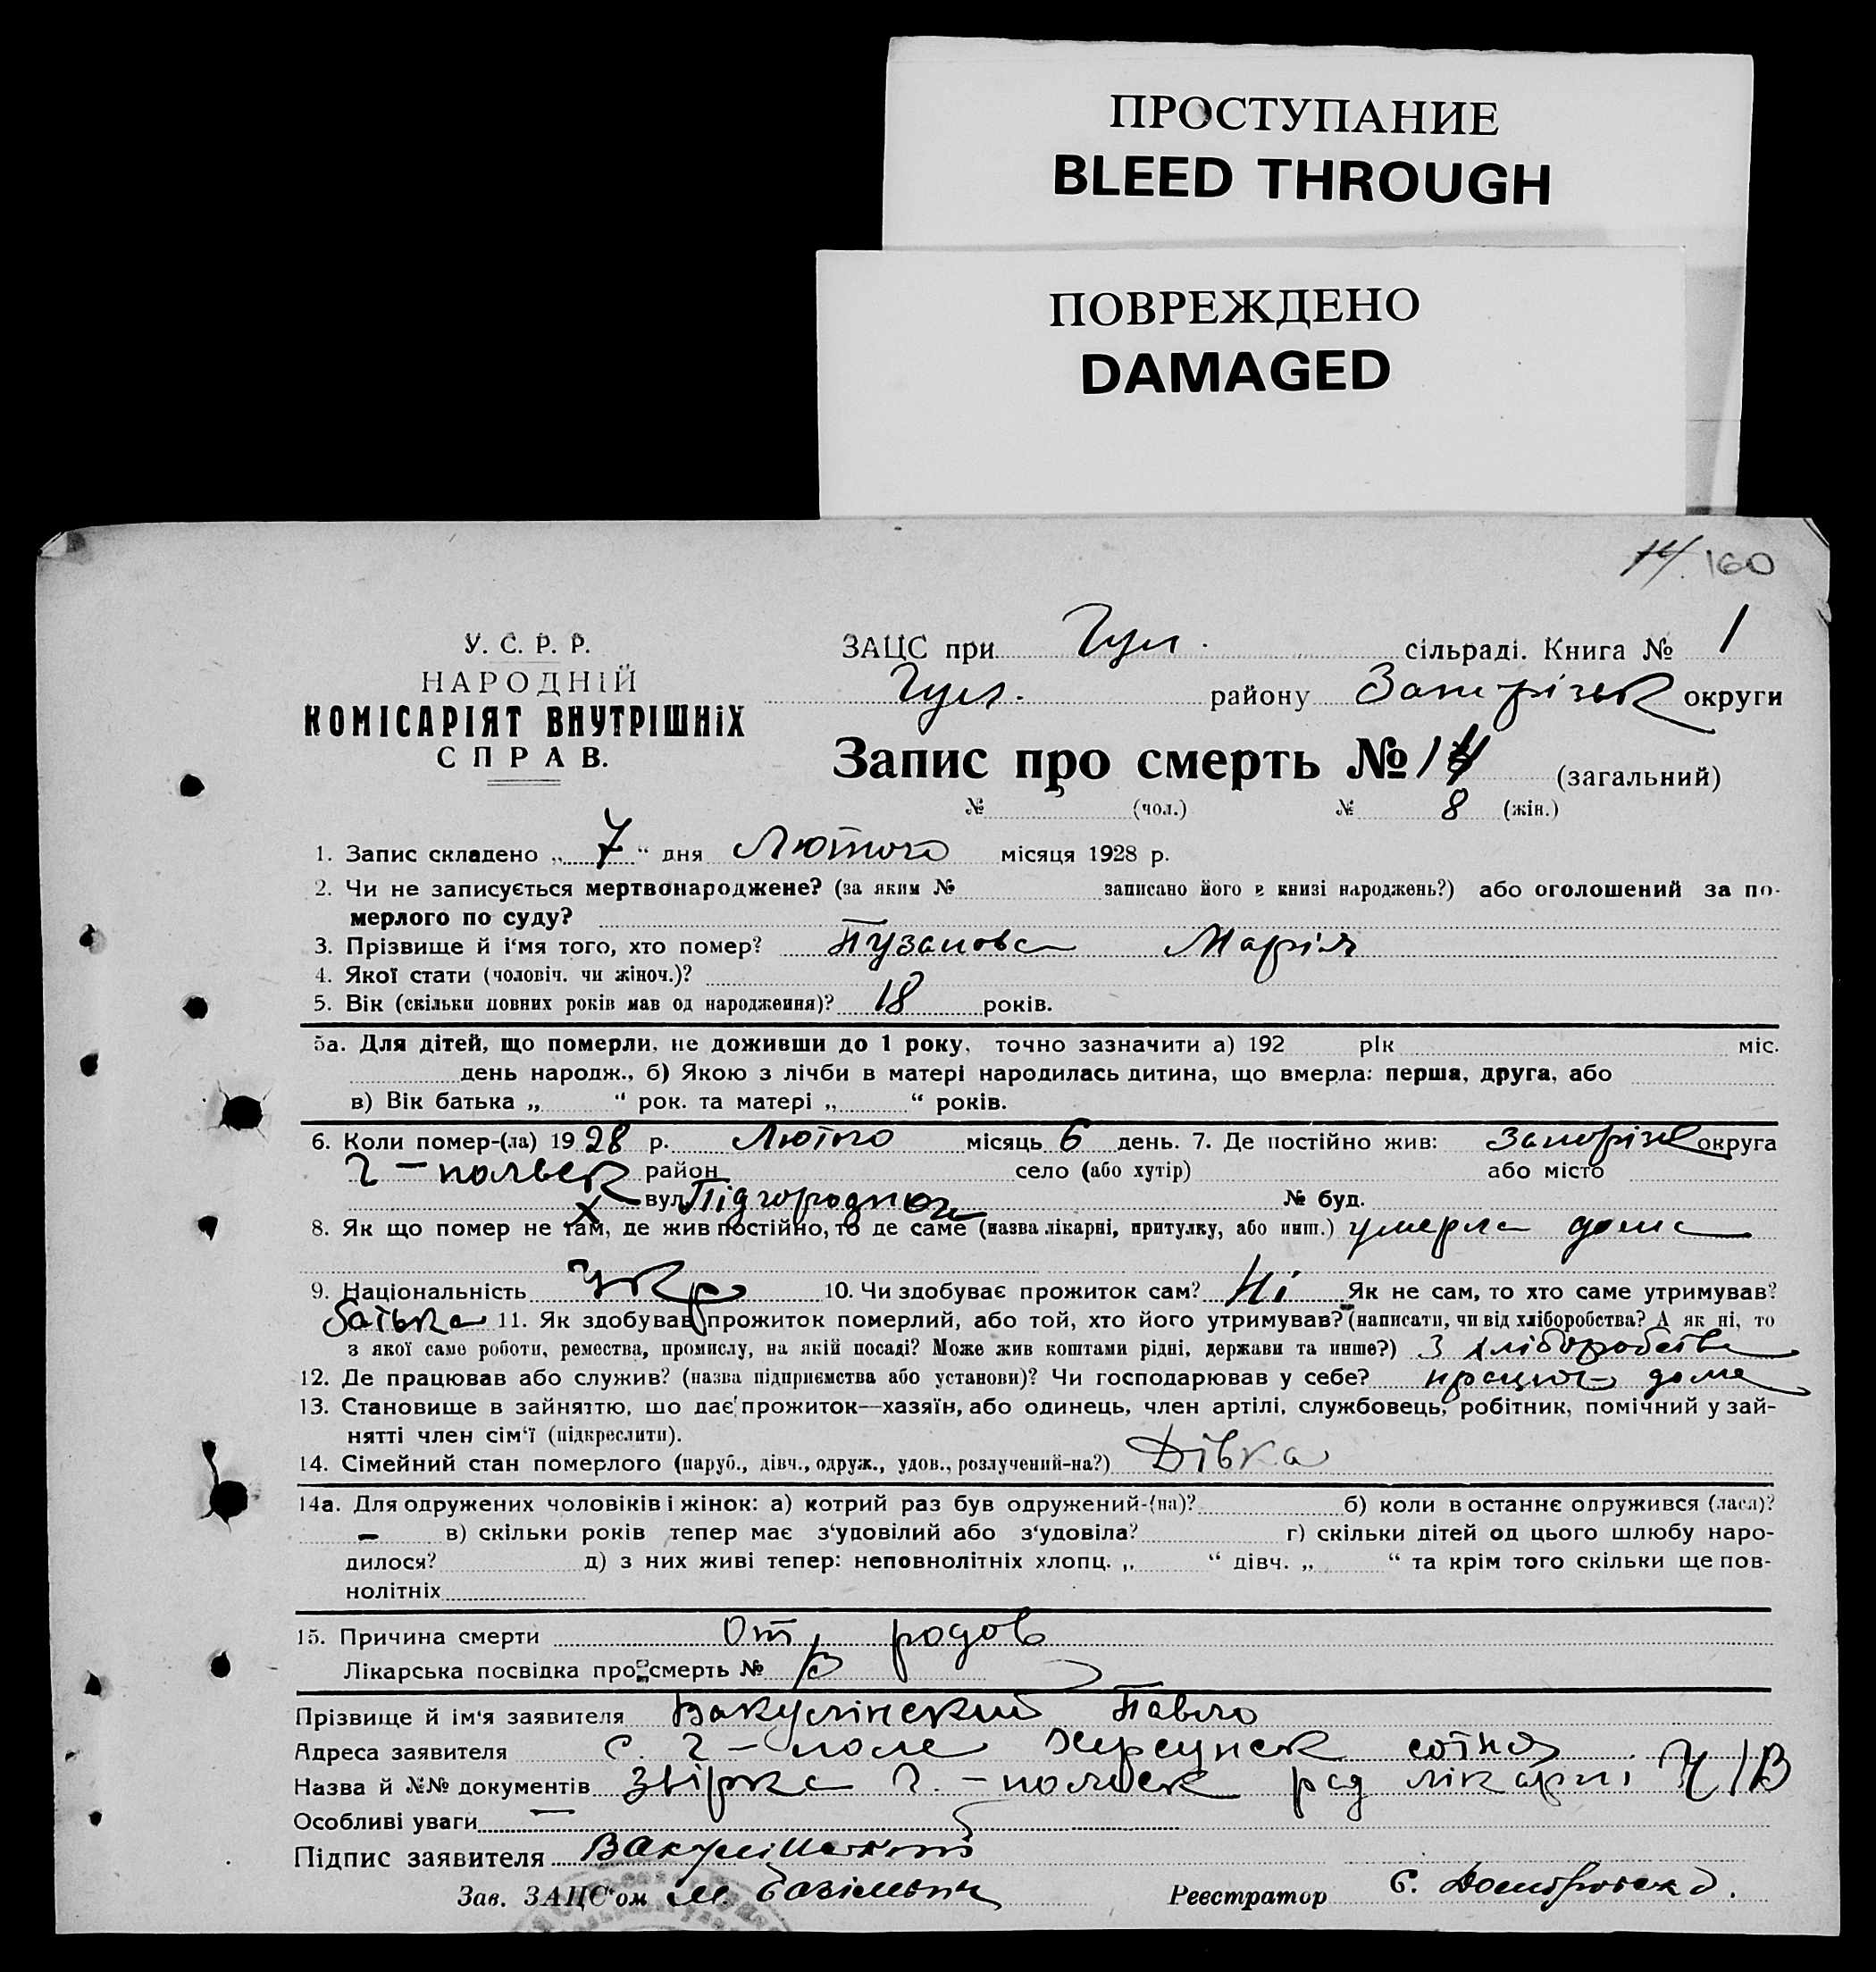 ПРОСТУПАНИЕ
BLEED THROUGH
ПОВРЕЖДЕНО
DAMAGED
14. 160
У. С. Р. Р.
НАРОДНІЙ
КОМІСАРІЯТ ВНУТРІШНІХ
СПРАВ.
ЗАЦС при Гул. сільраді. Книга № 1
Гул. району Запорізьк округи
Запис про смерть № 14 (загальний)
№ (чол.) № 8 (жін.)
1. Запис складено „ 7 “ дня Лютого місяця 1928 р.
2. Чи не записується мертвонароджене? (за яким № записано його в книзі народжень?) або оголошений за по-
мерлого по суду?
3. Прізвище й і'мя того, хто помер? Пузанова Марія
4. Якої стати (чоловіч. чи жіноч.)?
5. Вік (скільки повних років мав од народження)? 18 років.
5а. Для дітей, що померли, не доживши до 1 року, точно зазначити а) 192 рік міс.
день народж., б) Якою з лічби в матері народилась дитина, що вмерла: перша, друга, або
в) Вік батька „ “ рок. та матері „ “ років.
6. Коли помер-(ла) 1928 р. Лютого місяць 6 день. 7. Де постійно жив: Запоріз округа
Г-польск район село (або хутір) або місто
вул. Підгороднюю № буд.
8. Як що помер не там, де жив постійно, то де саме (назва лікарні, притулку, або инш.) умерла дома
9. Національність Укр 10. Чи здобуває прожиток сам? Ні Як не сам, то хто саме утримував?
батька 11. Як здобував прожиток померлий, або той, хто його утримував? (написати, чи від хліборобства? А як ні, то
з якої саме роботи, ремества, промислу, на якій посаді? Може жив коштами рідні, держави та инше?) З хліборобства
12. Де працював або служив? (назва підприємства або установи)? Чи господарював у себе? працює дома
13. Становище в зайняттю, що дає прожиток—хазяїн, або одинець, член артілі, службовець, робітник, помічний у зай-
нятті член сім'ї (підкреслити).
14. Сімейний стан померлого (паруб., дівч., одруж., удов., розлучений-на?) Дівка
14а. Для одружених чоловіків і жінок: а) котрий раз був одружений-(на)? б) коли в останнє одружився (лася)?
– в) скільки років тепер має з'удовілий або з'удовіла? г) скільки дітей од цього шлюбу наро-
дилося? д) з них живі тепер: неповнолітніх хлопц. „ “ дівч. „ “ та крім того скільки ще пов-
нолітніх
15. Причина смерти От родов
Лікарська посвідка про смерть №
Прізвище й ім'я заявителя Вакулінский Павло
Адреса заявителя с. Г-поле Херсунск сотня
Назва й №№ документів Звірка Г.-польск рад лікарні
Особливі уваги –
Підпис заявителя
Зав. ЗАЦС'ом М.
Реєстратор С.